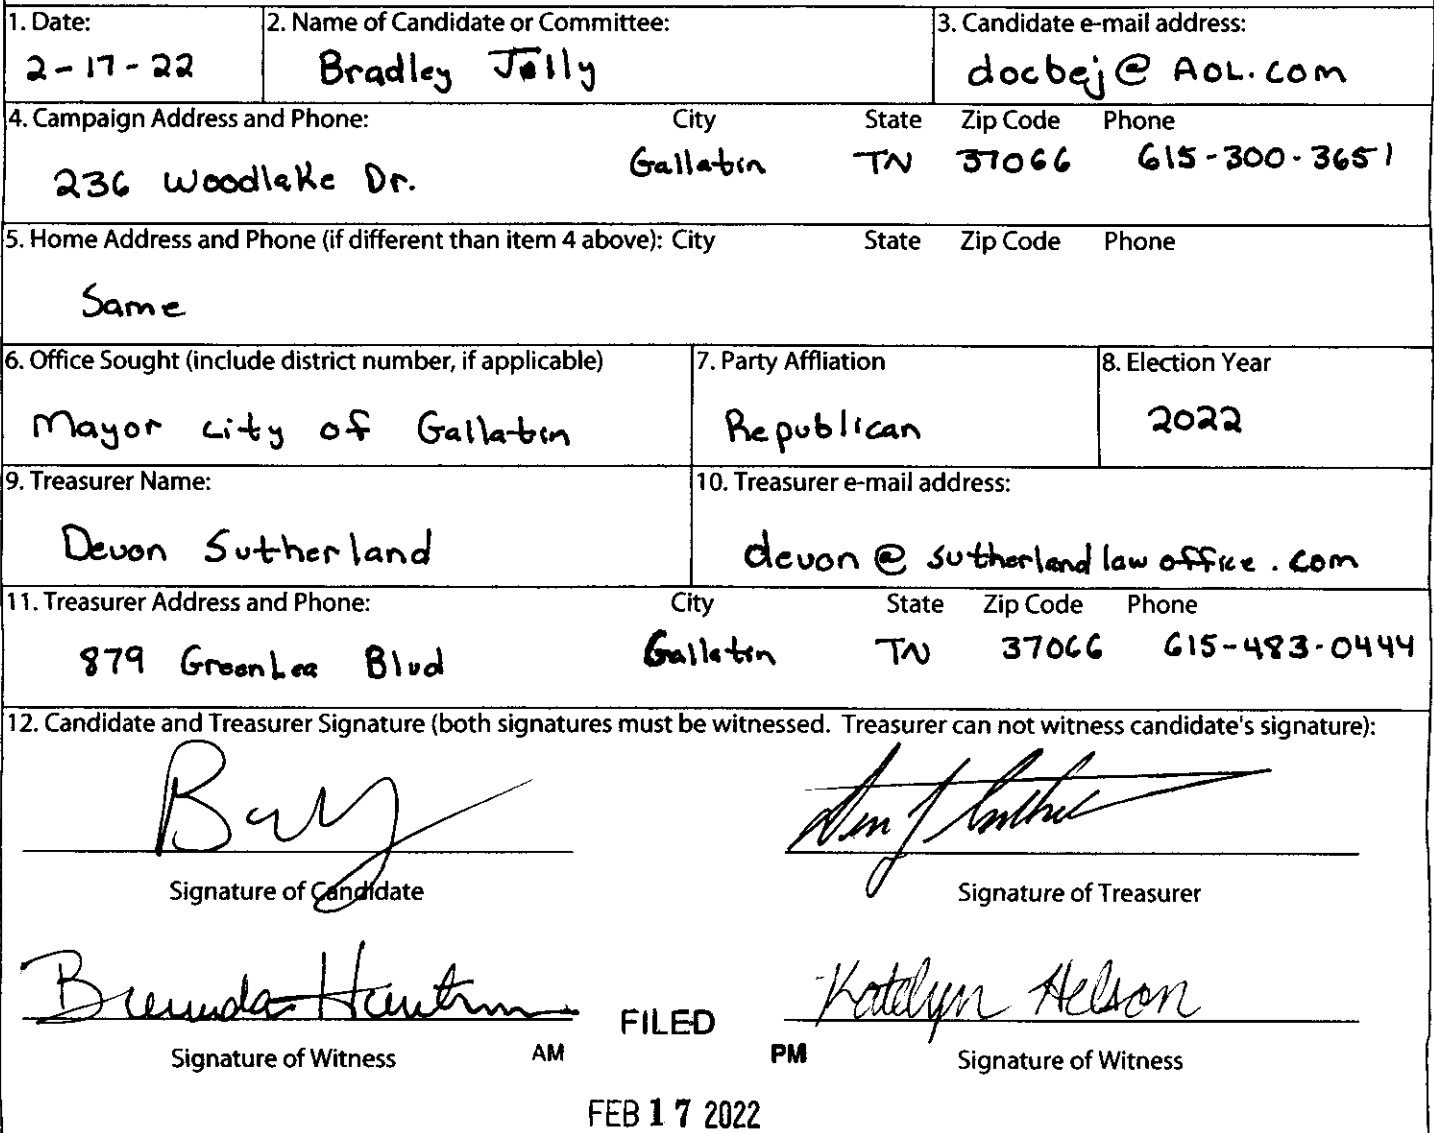 1. Date: 2. Name of Candidate or Committee: 3. Candidate e-mail address:
2-17-22 Bradley Jolly docbej@AOL.com
4. Campaign Address and Phone: City State Zip Code Phone
236 Woodlake Dr. Gallatin TN 37066 615-300-3651
5. Home Address and Phone (if different than item 4 above): City State Zip Code Phone
Same
6. Office Sought (include district number, if applicable) 7. Party Affliation 8. Election Year
Mayor city of Gallatin Republican 2022
9. Treasurer Name: 10. Treasurer e-mail address:
Devon Sutherland devon@sutherlandlawoffice.com
11. Treasurer Address and Phone: City State Zip Code Phone
879 GreenLea Blvd Gallatin TN 37066 615-483-0444
12. Candidate and Treasurer Signature (both signatures must be witnessed. Treasurer can not witness candidate's signature):
Signature of Candidate Signature of Treasurer
Brenda Katelyn
FILED
Signature of Witness AM PM Signature of Witness
FEB 17 2022